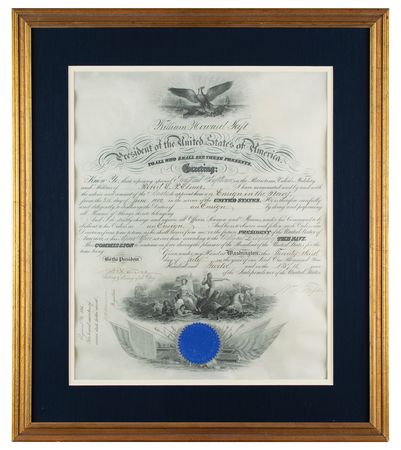 William Howard Taft
President of the United States of America.
TO ALL WHO SHALL SEE THESE PRESENTS,
Greeting:
Know Ye, that reposing special Trust and Confidence in the Patriotism, Valor, Fidelity
and Abilities of Robert E. P. Elmer, I have nominated and by and with
the advice and consent of the Senate do appoint him an Ensign in the Navy
from the 5th day of June 1912 in the service of the UNITED STATES. He is therefore carefully
and diligently to discharge the duties of an Ensign by doing and performing
all Manner of things thereto belonging.
And I do strictly charge and require all Officers, Seamen and Marines under his Command to be
obedient to his Orders as an Ensign. And he is to observe and follow such Orders and
Directions from time to time as he shall receive from me, or the future PRESIDENT of the United States of
America, or his Superior Officer set over him, according to the Rules and Discipline of THE NAVY.
This COMMISSION to continue in force during the pleasure of the President of the United States for the
time being.
Given under my Hand at Washington, this Twenty third
By the President
day of July in the year of our Lord One Thousand Nine
Hundred and Twelve and in the 137th year
of the Independence of the United States